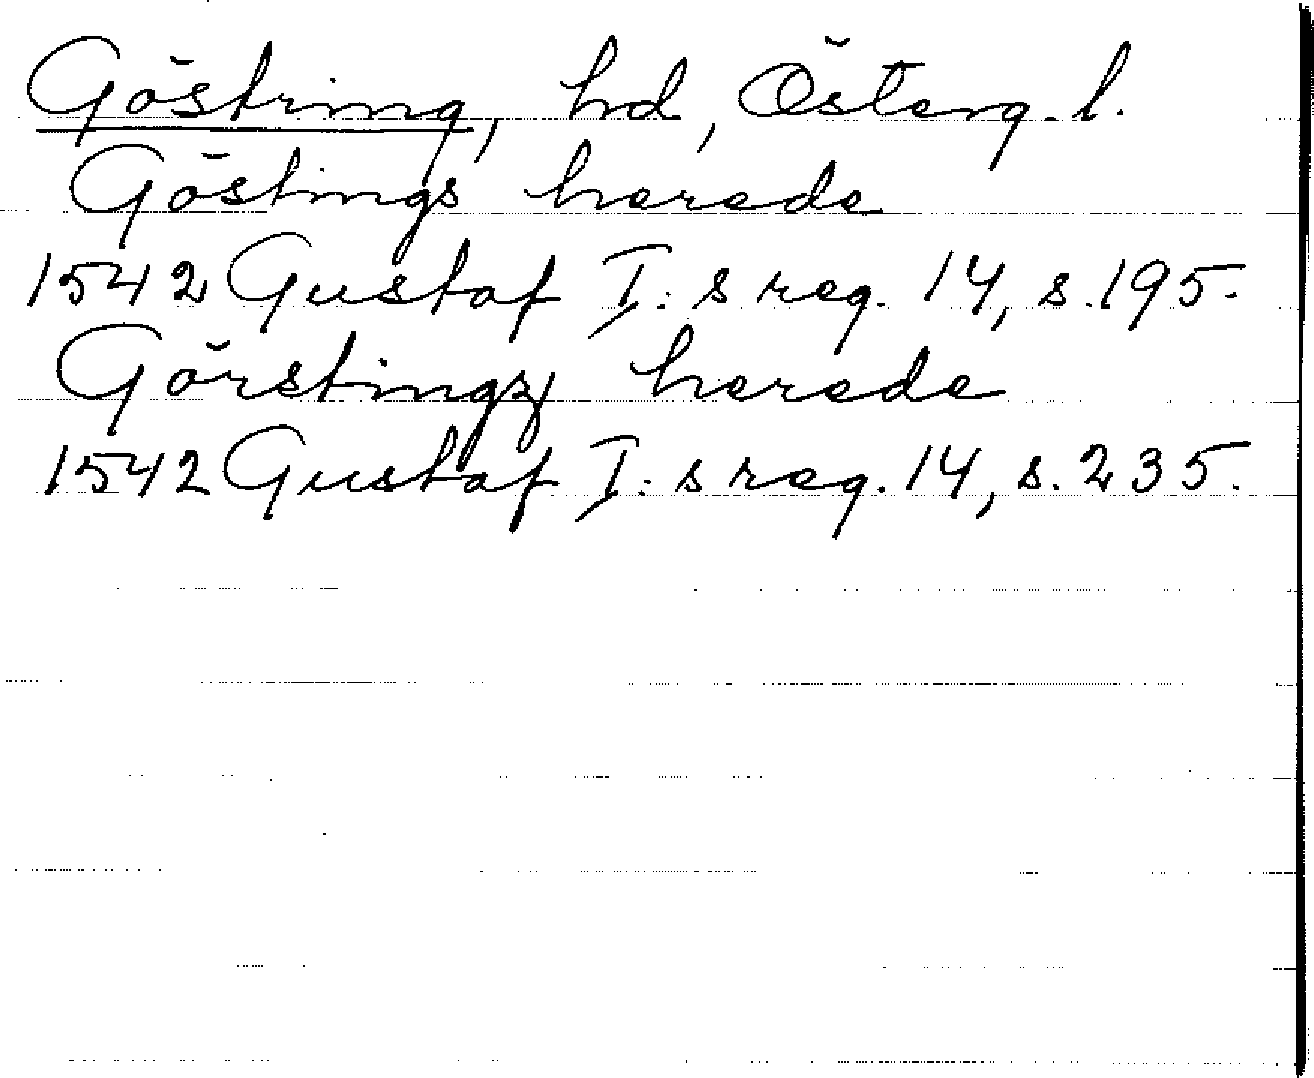 Göstring, hd, Österg. l.
Göstings herede
1542 Gustaf I:s reg. 14, s. 195.
Görstingz herede
1542 Gustaf I:s reg. 14, s. 235.